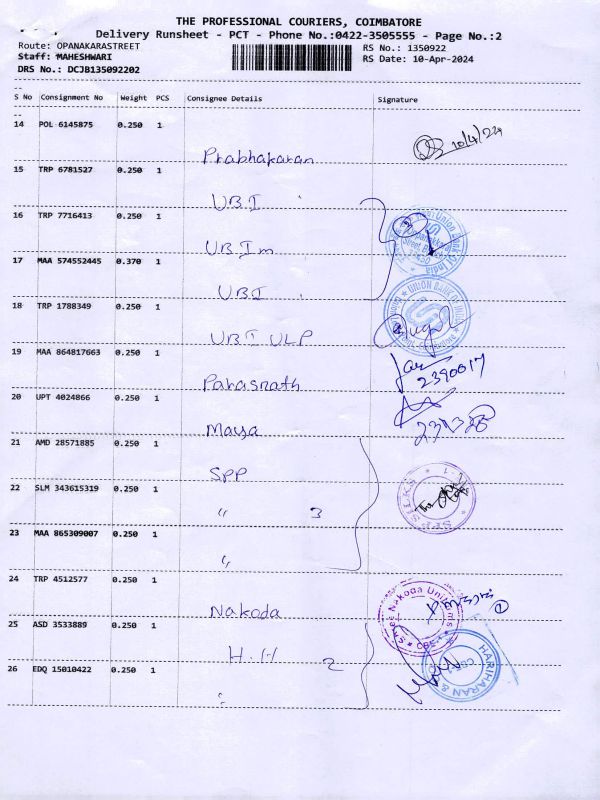 THE PROFESSIONAL COURIERS, COIMBATORE
Delivery Runsheet - PCT - Phone No.:0422-3505555 - Page No.:2
Route: OPANAKARASTREET RS No.: 1350922
Staff: MAHESHWARI RS Date: 10-Apr-2024
DRS No.: DCJB135092202
S No Consignment No Weight PCS Consignee Details Signature
14 POL 6145875 0.250 1
Prabhakaran 10/4/24
15 TRP 6781527 0.250 1
UBI
16 TRP 7716413 0.250 1
UBIm
17 MAA 574552445 0.370 1
UBI
18 TRP 1788349 0.250 1
UBI ULP
UNION BANK OF INDIA
19 MAA 864817663 0.250 1
Parasnath 2390017
20 UPT 4024866 0.250 1
Maya
21 AMD 28571885 0.250 1
SPP
22 SLM 343615319 0.250 1
" 3
SPP SILKS
23 MAA 865309007 0.250 1
"
24 TRP 4512577 0.250 1
Nakoda
Shree Nakoda Uniforms
25 ASD 3533889 0.250 1
H.H 2
HARIHARAN &
26 EDQ 15010422 0.250 1
: